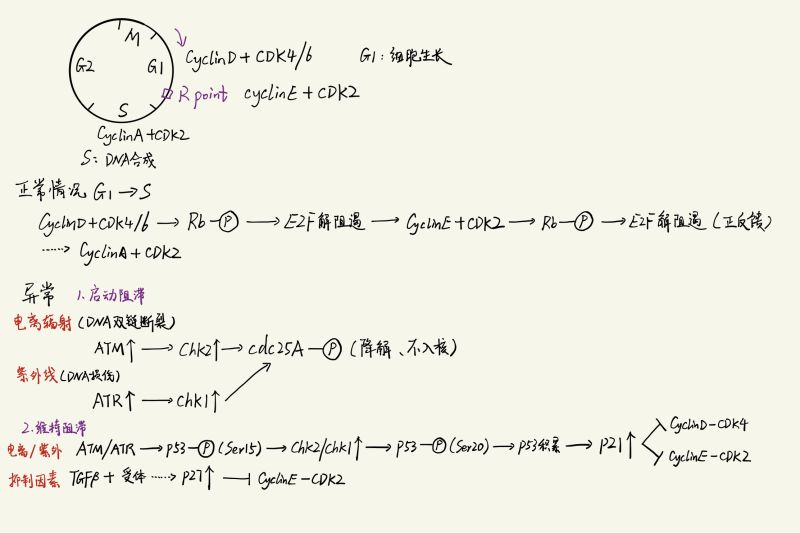 M
G2
G1
S
CyclinD + CDK4/6
G1：细胞生长
R point cyclinE + CDK2
CyclinA + CDK2
S：DNA合成
正常情况 G1 → S
CyclinD + CDK4/6 → Rb-P → E2F解阻遏 → CyclinE + CDK2 → Rb-P → E2F解阻遏（正反馈）
┈→ CyclinA + CDK2
异常 1.启动阻滞
电离辐射（DNA双链断裂）
ATM↑ → Chk2↑ → cdc25A-P（降解、不入核）
紫外线（DNA损伤）
ATR↑ → Chk1↑
2.维持阻滞
电离/紫外 ATM/ATR → P53-P(Ser15) → Chk2/Chk1↑ → P53-P(Ser20) → P53积累 → P21↑
CyclinD-CDK4
CyclinE-CDK2
抑制因素 TGFβ + 受体 ┈→ P27↑ ⊣ CyclinE-CDK2